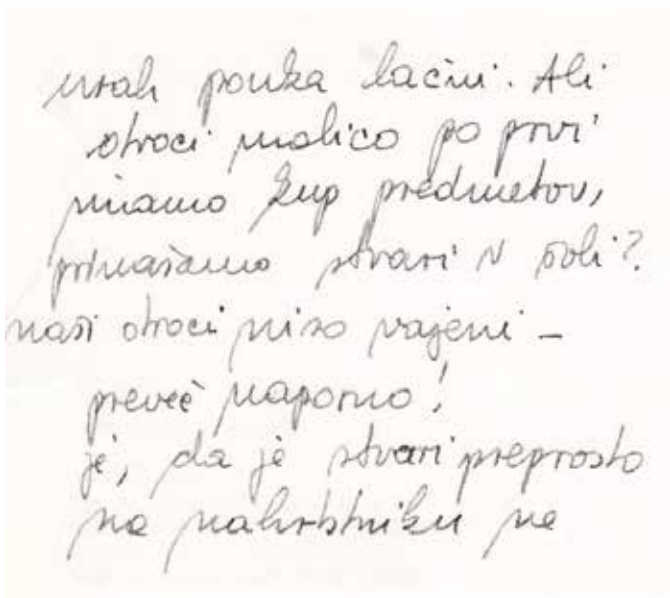 urah pouka lačni. Ali
otroci malico po prvi
nimamo kup predmetov,
prinašamo stvari v šoli?
naši otroci niso vajeni –
preveč naporno!
je, da je stvari preprosto
na nahrbtniku ne